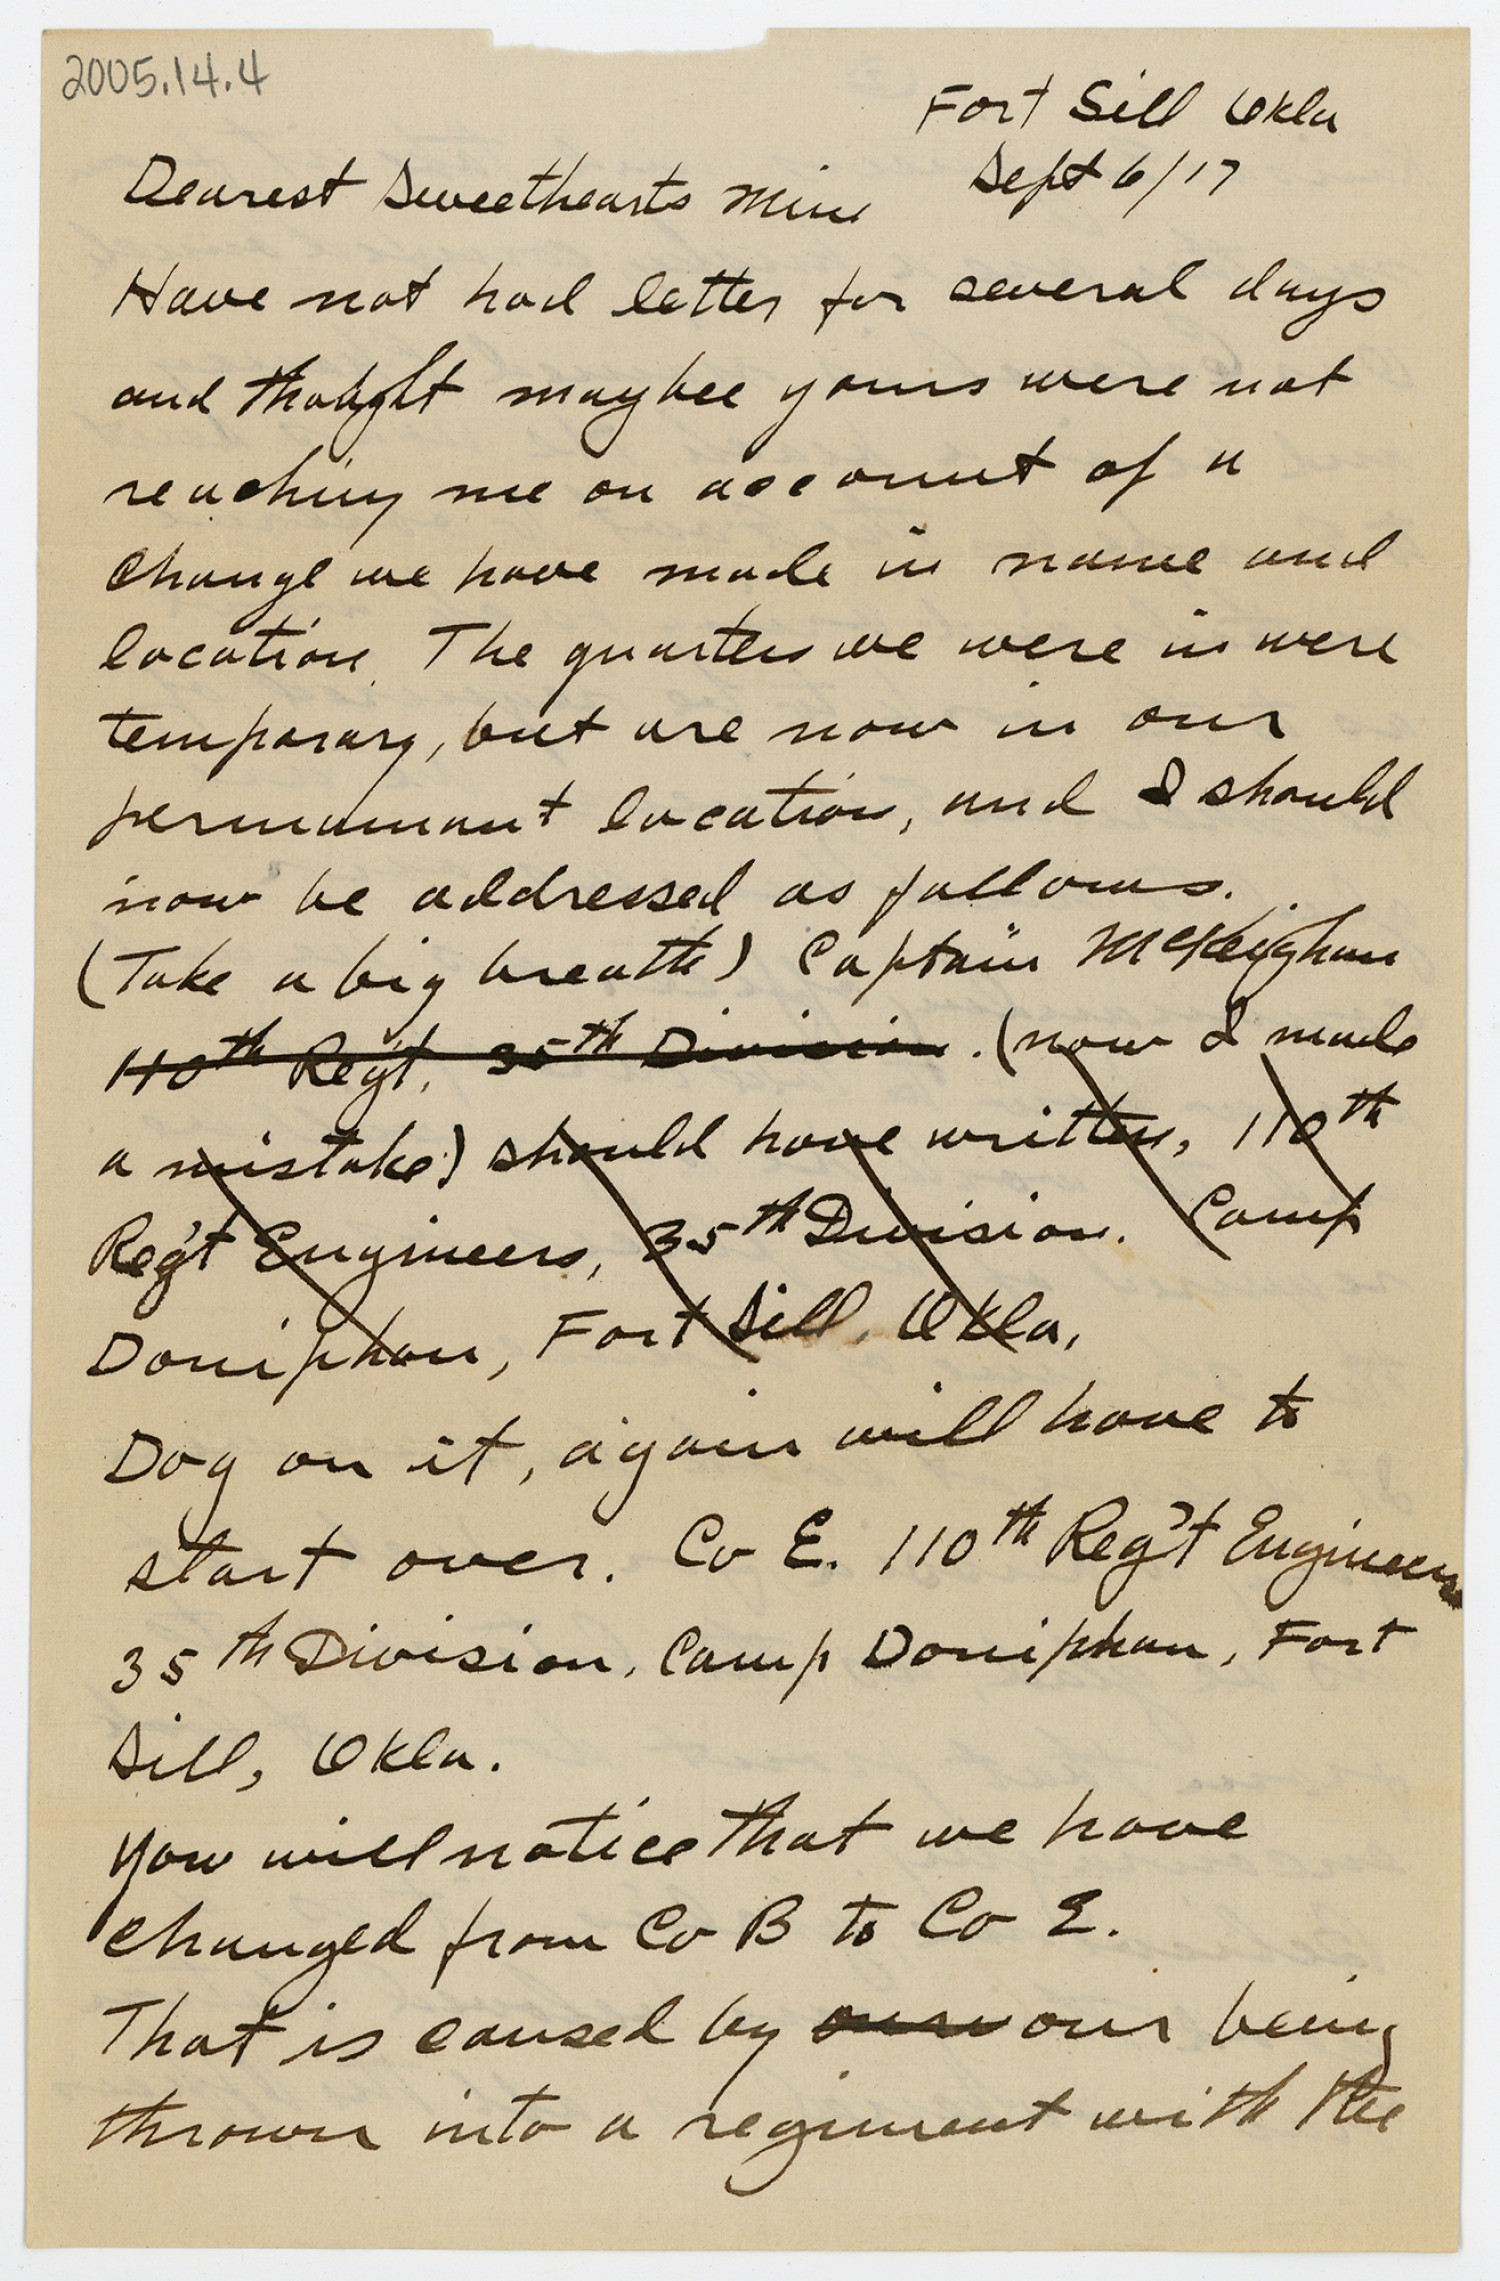 2005.14.4
Fort Sill Okla
Sept 6/17
Dearest Sweethearts Mine
Have not had letter for several days
and thought maybee yours were not
reaching me on account of a
change we have made in name and
location. The quarters we were in were
temporary, but are now in our
permanant location, and I should
now be addressed as follows.
(Take a big breath) Captain McKeighan
110th Reg't, 35th Division. (now I made
a mistake) should have written, 110th
Reg't Engineers, 35th Division. Camp
Doniphan, Fort Sill, Okla,
Dog on it, again will have to
start over. Co E. 110th Reg't Engineers
35th Division, Camp Doniphan, Fort
Sill, Okla.
You will notice that we have
changed from Co B to Co E.
That is caused by our being
thrown into a regiment with the